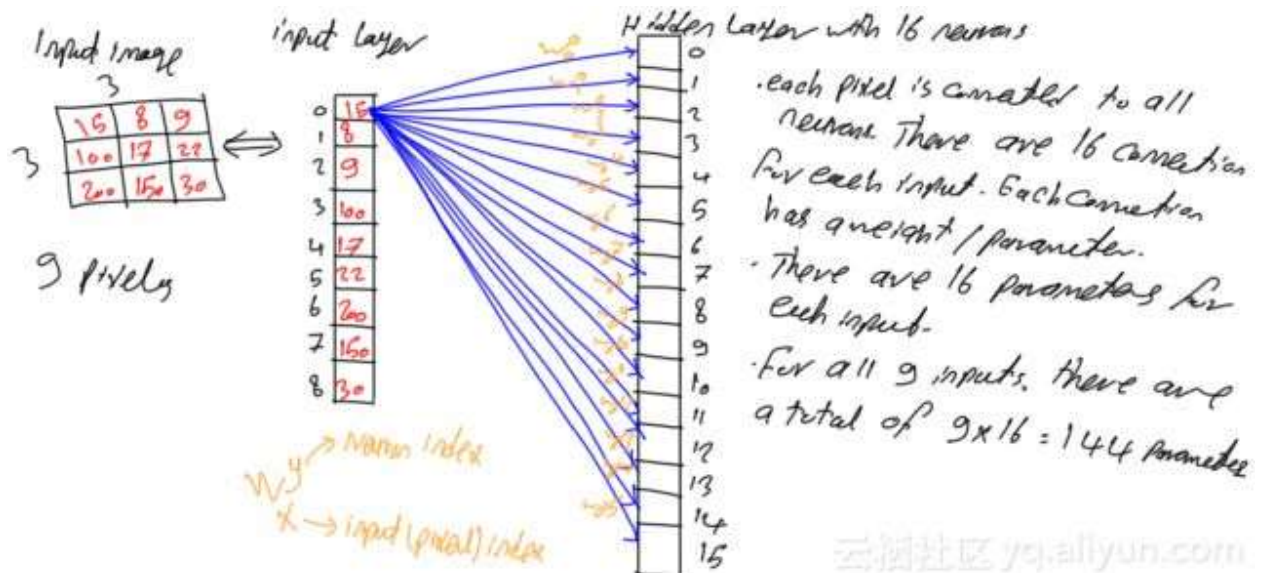 Input image
3
3
15 8 9
100 17 22
200 150 30
9 pixels
input layer
0 15
1 8
2 9
3 100
4 17
5 22
6 200
7 150
8 30
W y → index
x → input (pixel) index
Hidden Layer with 16 neurons
0
1
2
3
4
5
6
7
8
9
10
11
12
13
14
15
. each pixel is connected to all
neurons There are 16 connection
for each input. Each connection
has a weight / parameter.
. There are 16 parameters for
each input.
. For all 9 inputs, there are
a total of 9x16 = 144 parameter
云栖社区 yq.aliyun.com